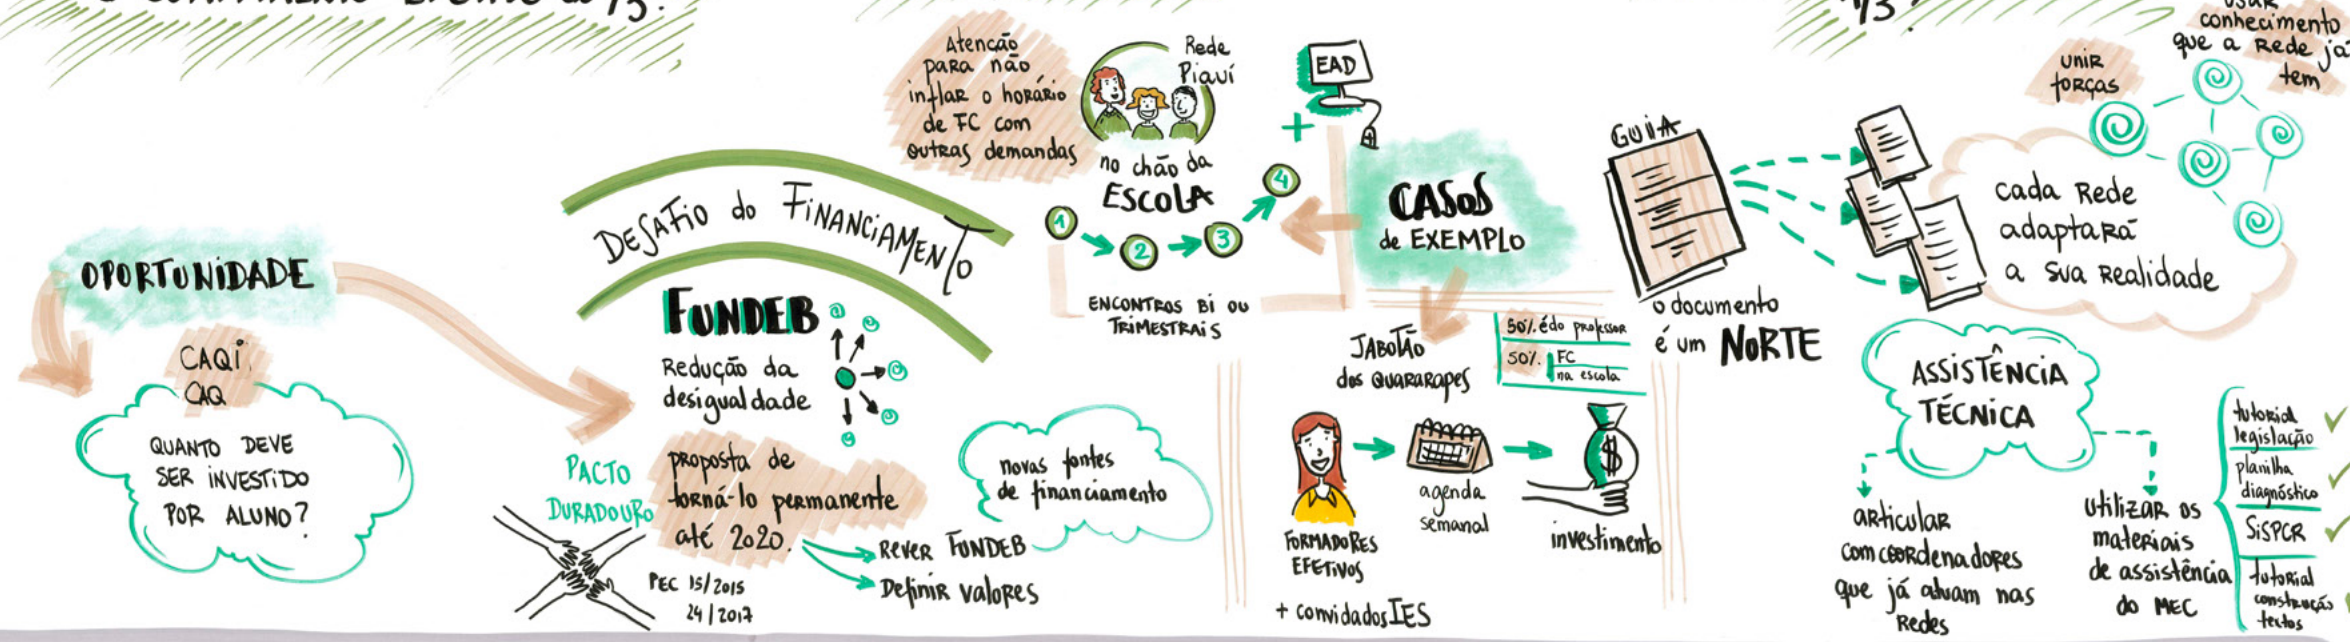 1/3.
1/3?
OPORTUNIDADE
CAQi
CAQ
QUANTO DEVE
SER iNVESTiDO
POR ALUNO?
DESAFIO do FINANCIAMENTO
FUNDEB
Redução da
desigualdade
PACTO
DURADOURO
proposta de
torná-lo permanente
até 2020.
PEC 15/2015
24/2017
REVER FUNDEB
Definir valores
novas fontes
de financiamento
Atenção
para não
inflar o horário
de FC com
outras demandas
Rede
Piauí
no chão da
ESCOLA
1
2
3
4
ENCONTROS Bi OU
TRiMESTRAiS
EAD
+
CASOS
de EXEMPLO
JABOTÃO
dos QUARARAPES
50% é do professor
50% FC
na escola
FORMADORES
EFETIVOS
+ convidados IES
agenda
semanal
$
investimento
GUiA
o documento
é um NORTE
cada Rede
adaptará
a sua Realidade
unir
forças
usar
conhecimento
que a Rede já
tem
ASSiSTÊNCiA
TÉCNiCA
articular
com coordenadores
que já atuam nas
Redes
utilizar os
materiais
de assistência
do MEC
tutorial
legislação
planilha
diagnóstico
SiSPCR
tutorial
construção
textos